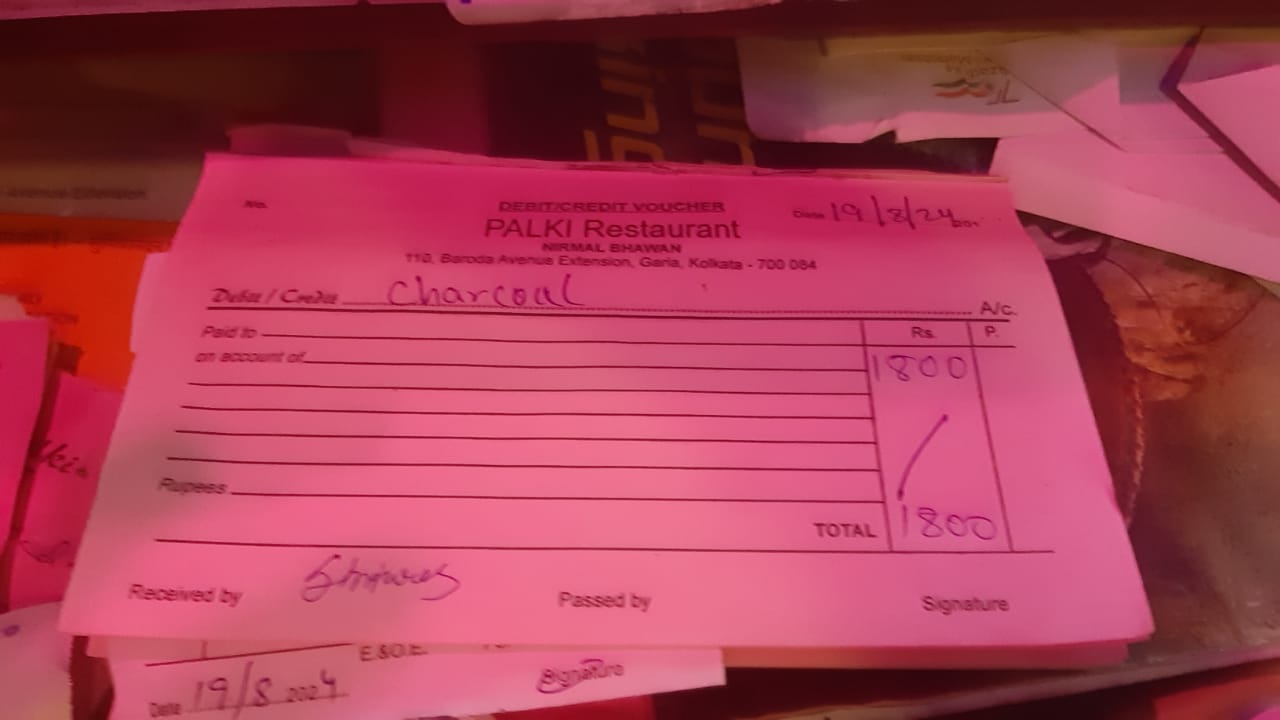 No.
DEBIT/CREDIT VOUCHER
Date 19/8/24 201
PALKI Restaurant
NIRMAL BHAWAN
110, Baroda Avenue Extension, Garia, Kolkata - 700 084
Debit / Credit Charcoal A/c.
Paid to Rs. P.
on account of 1800
Rupees
TOTAL 1800
Received by
Passed by
Signature
E.&O.E.
Date 19/8 2024
Signature
Avenue Extension